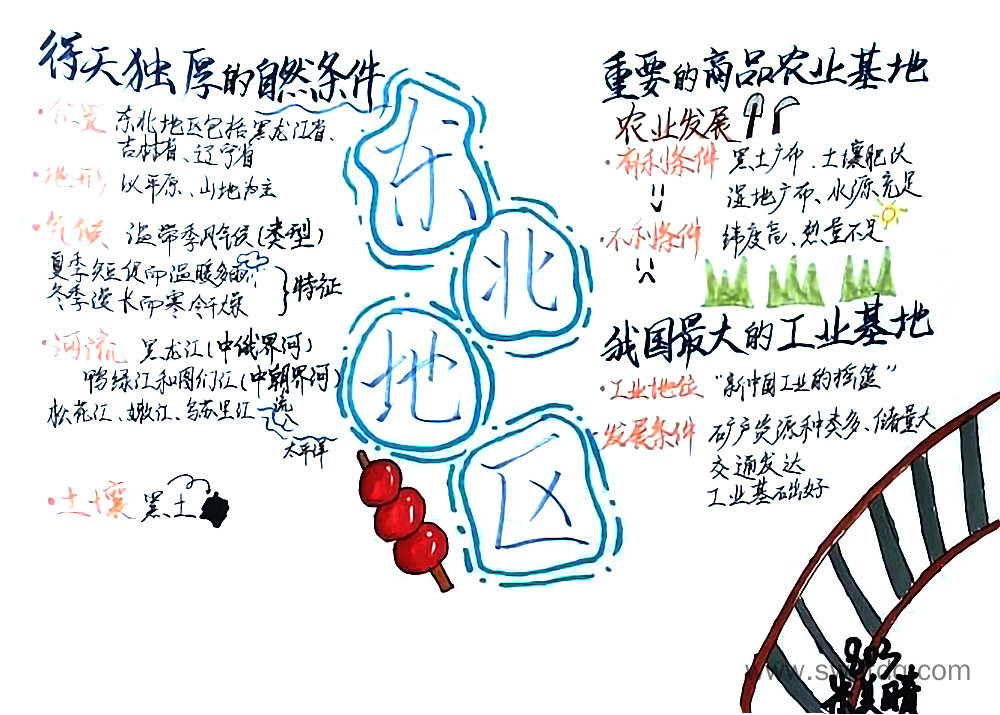 得天独厚的自然条件
·位置 东北地区包括黑龙江省、
吉林省、辽宁省
·地形 以平原、山地为主
·气候 温带季风气候(类型)
夏季短促而温暖多雨
冬季漫长而寒冷干燥
}特征
·河流 黑龙江(中俄界河)
鸭绿江和图们江(中朝界河)
松花江、嫩江、乌苏里江 流
太平洋
·土壤 黑土
东
北
地
区
重要的商品农业基地
农业发展
·有利条件 黑土广布、土壤肥沃
湿地广布、水源充足
·不利条件 纬度高、热量不足
我国最大的工业基地
·工业地位 “新中国工业的摇篮”
·发展条件 矿产资源种类多、储量大
交通发达
工业基础好
803